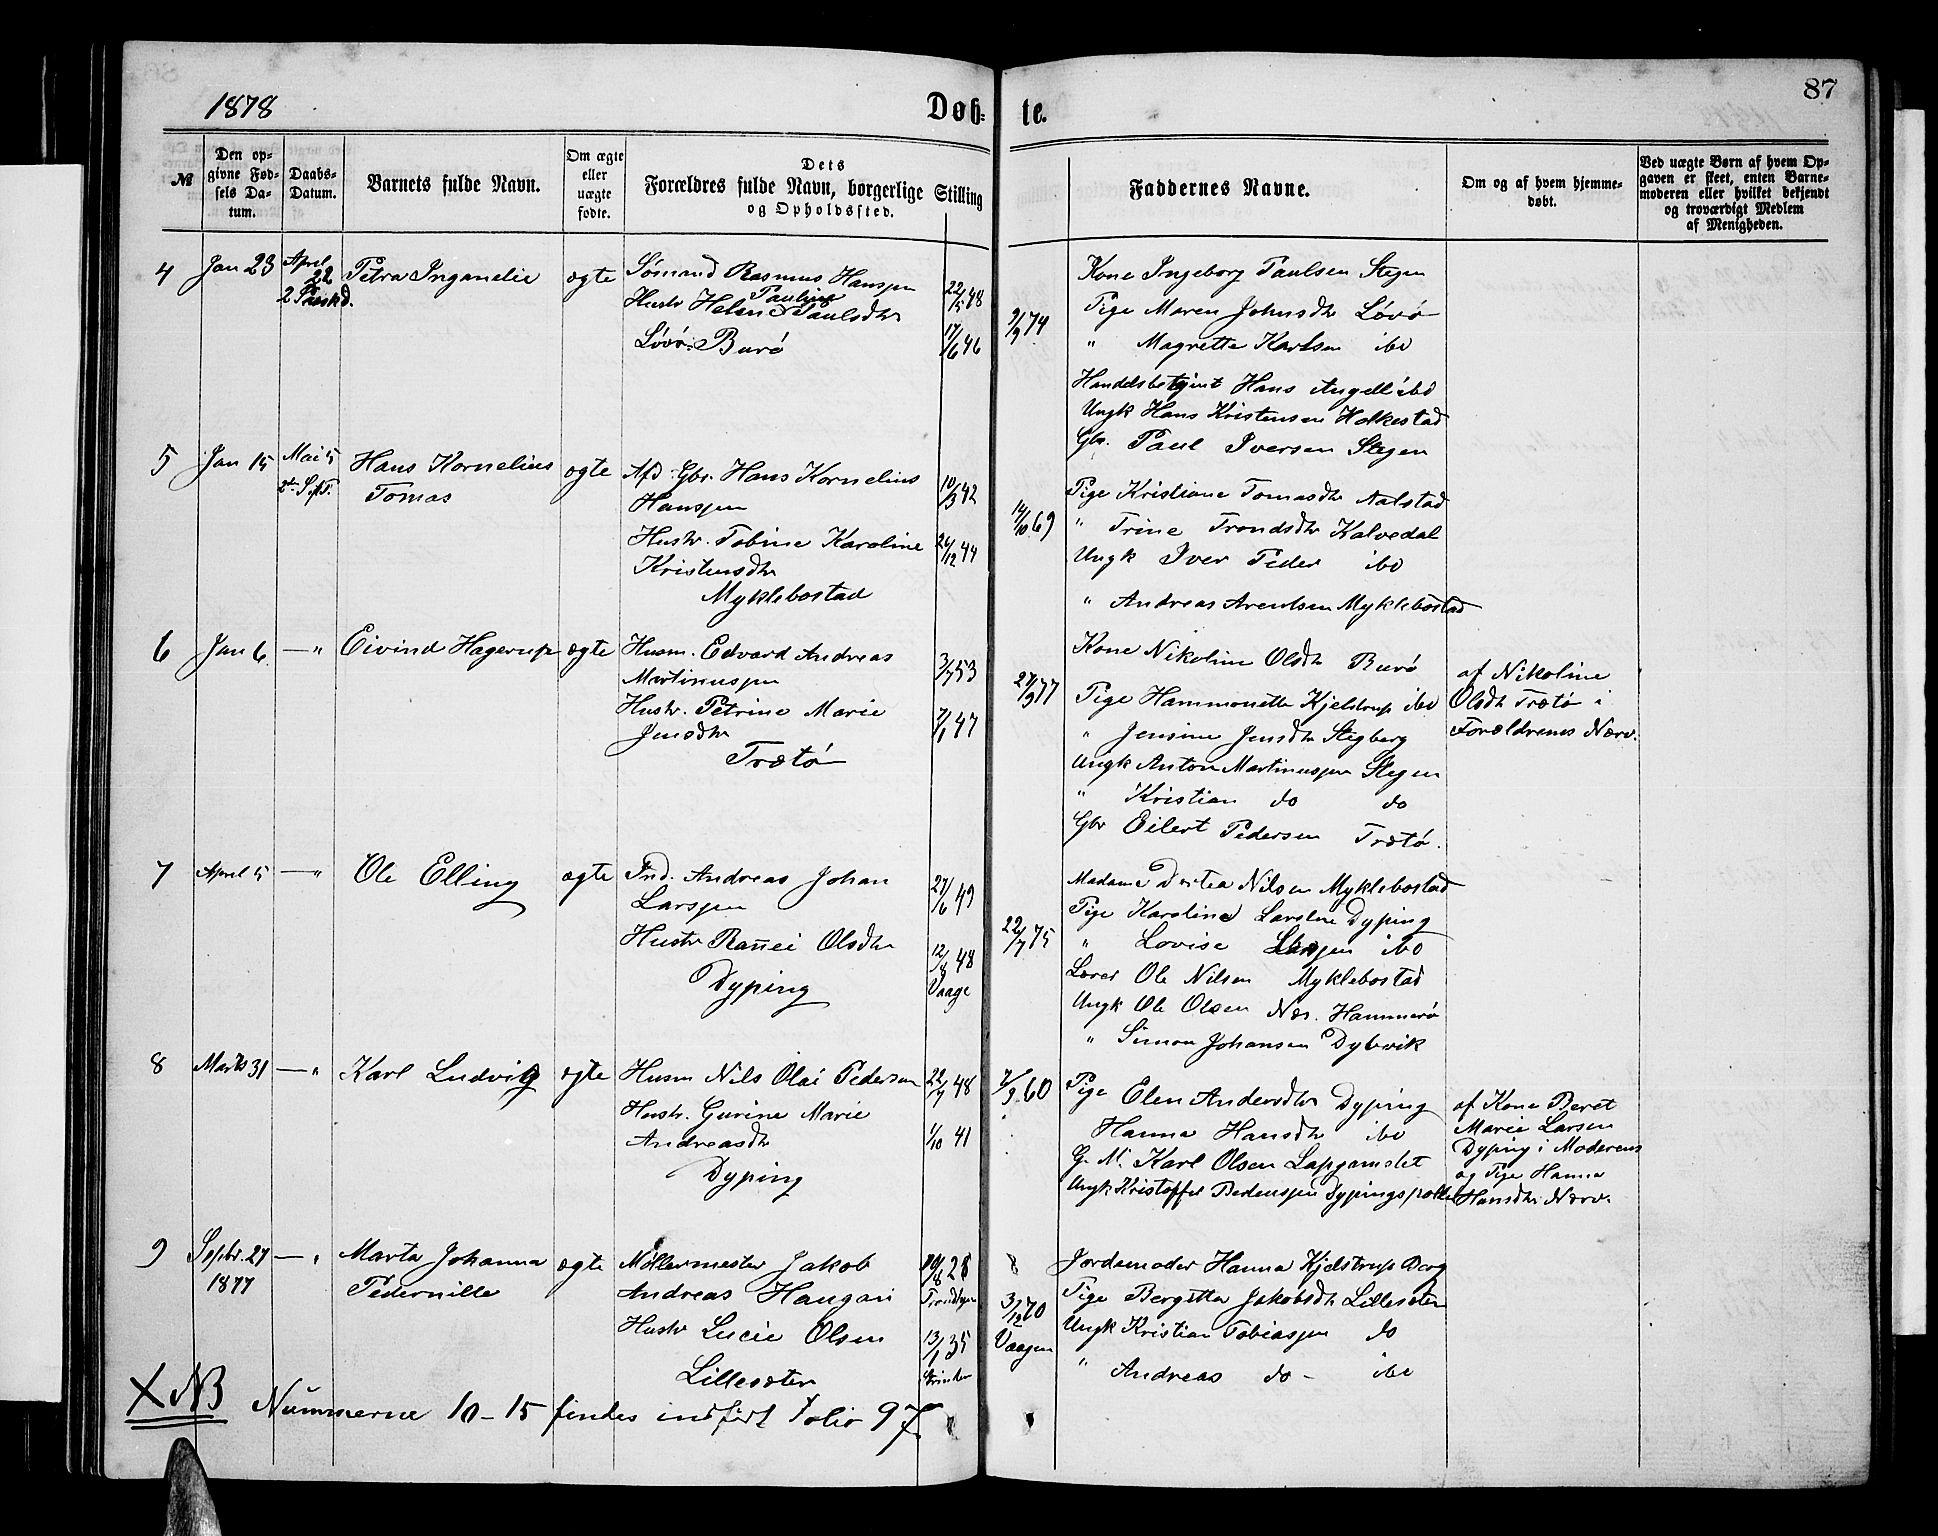 1878
Døb-
te.
87
№
Den op-
givne Fød-
sels Da-
tum.
Daabs-
Datum.
Barnets fulde Navn.
Om ægte
eller
uægte
fødte.
Dets
Forældres fulde Navn, borgerlige Stilling
og Opholdssted.
Faddernes Navne.
Om og af hvem hjemme-
døbt.
Ved uægte Børn af hvem Op-
gaven er skeet, enten Barne-
moderen eller hvilket bekjendt
og troværdigt Medlem
af Menigheden.
4
Jan 23
April
22
2 Paaskd.
Petra Inganelie
ægte
Sømand Rasmus Hansen
Hustr Helene Pauline Paulsdtr
Løvø: Burø
22/5 48
17/6 46
9/9 74
Kone Ingeborg Paulsen Stegen
Pige Maren Johnsdtr Løvø
" Magrette Karlsen ibd
Handelsbetjent Hans Angell ibd
Ungk Hans Kristensen Holkestad
Gbr. Paul Iversen Stegen
5
Jan 15
Mai 5
2. S. e. P.
Hans Kornelius
Tomas
ægte
Afd. Gbr. Hans Kornelius
Hansen
Hustr. Tobine Karoline
Kristensdtr
Myklebostad
10/3 42
26/12 44
14/10 69
Pige Kristiane Tomasdtr Aalstad
" Trine Trondsdtr Kalvedal
Ungk Iver Peder ibd
" Andreas Arentsen Myklebostad
6
Jan 6.
— "
Eivind Hagerup
ægte
Husm. Edvard Andreas
Martinussen
Hustr. Petrine Marie
Jensdtr
Trætø
3/7 53
7/1 47
27/9 77
Kone Nikoline Olsdtr Burø
Pige Hammonette Kjelstrup ibd
" Jensine Jensdtr Stegberg
Ungk Anton Martinussen Stegen
" Kristian do do
Gbr Eilert Pedersen Trætø.
af Nikoline
Olsdtr Trætø i
Forældrenes Nærv.
7
April 5
— "
Ole Elling
ægte
Ind. Andreas Johan
Larssen
Hustr Rannei Olsdtr
Dyping
27/6 49
12/8 48
Vaage
22/7 75
Madame Dortea Nilsen Myklebostad
Pige Karoline Larsen Dyping
" Lovise Larssen ibd
Lærer Ole Nilsen Myklebostad
Ungk Ole Olsen Næs. Hammerø
" Simon Johansen Dybvik
8
Marts 31
— "
Karl Ludvig
ægte
Husm Nils Olai Pedersen
Hustr. Gurine Marie
Andreasdtr
Dyping
22/7 48
1/10 41
7/9 60
Pige Elen Andersdtr Dyping
Hanna Hansdtr ibd
G. M. Karl Olsen Lapgamslet
Ungk Kristoffer Pedersen Dypingspollen
af Kone Beret
Marie Larsen
Dyping i Moderens
og Pige Hanna
Hansdtr Nærv.
9
Septbr. 27
1877
— "
Marta Johanna
Pedernille
ægte
Møllermester Jakob
Andreas Haugan
Hustr Lucie Olsen
Lillesæter
Trondhjem
13/1 35
Strinden
3/12 70
Vaagen
Jordemoder Hanna Kjelstrup Borg
Pige Bergitta Jakobsdtr Lillesæter
Ungk Kristian Tobiassen do
" Andreas do - ibd
X NB Nummerne 10-15 findes indført Folio 97.